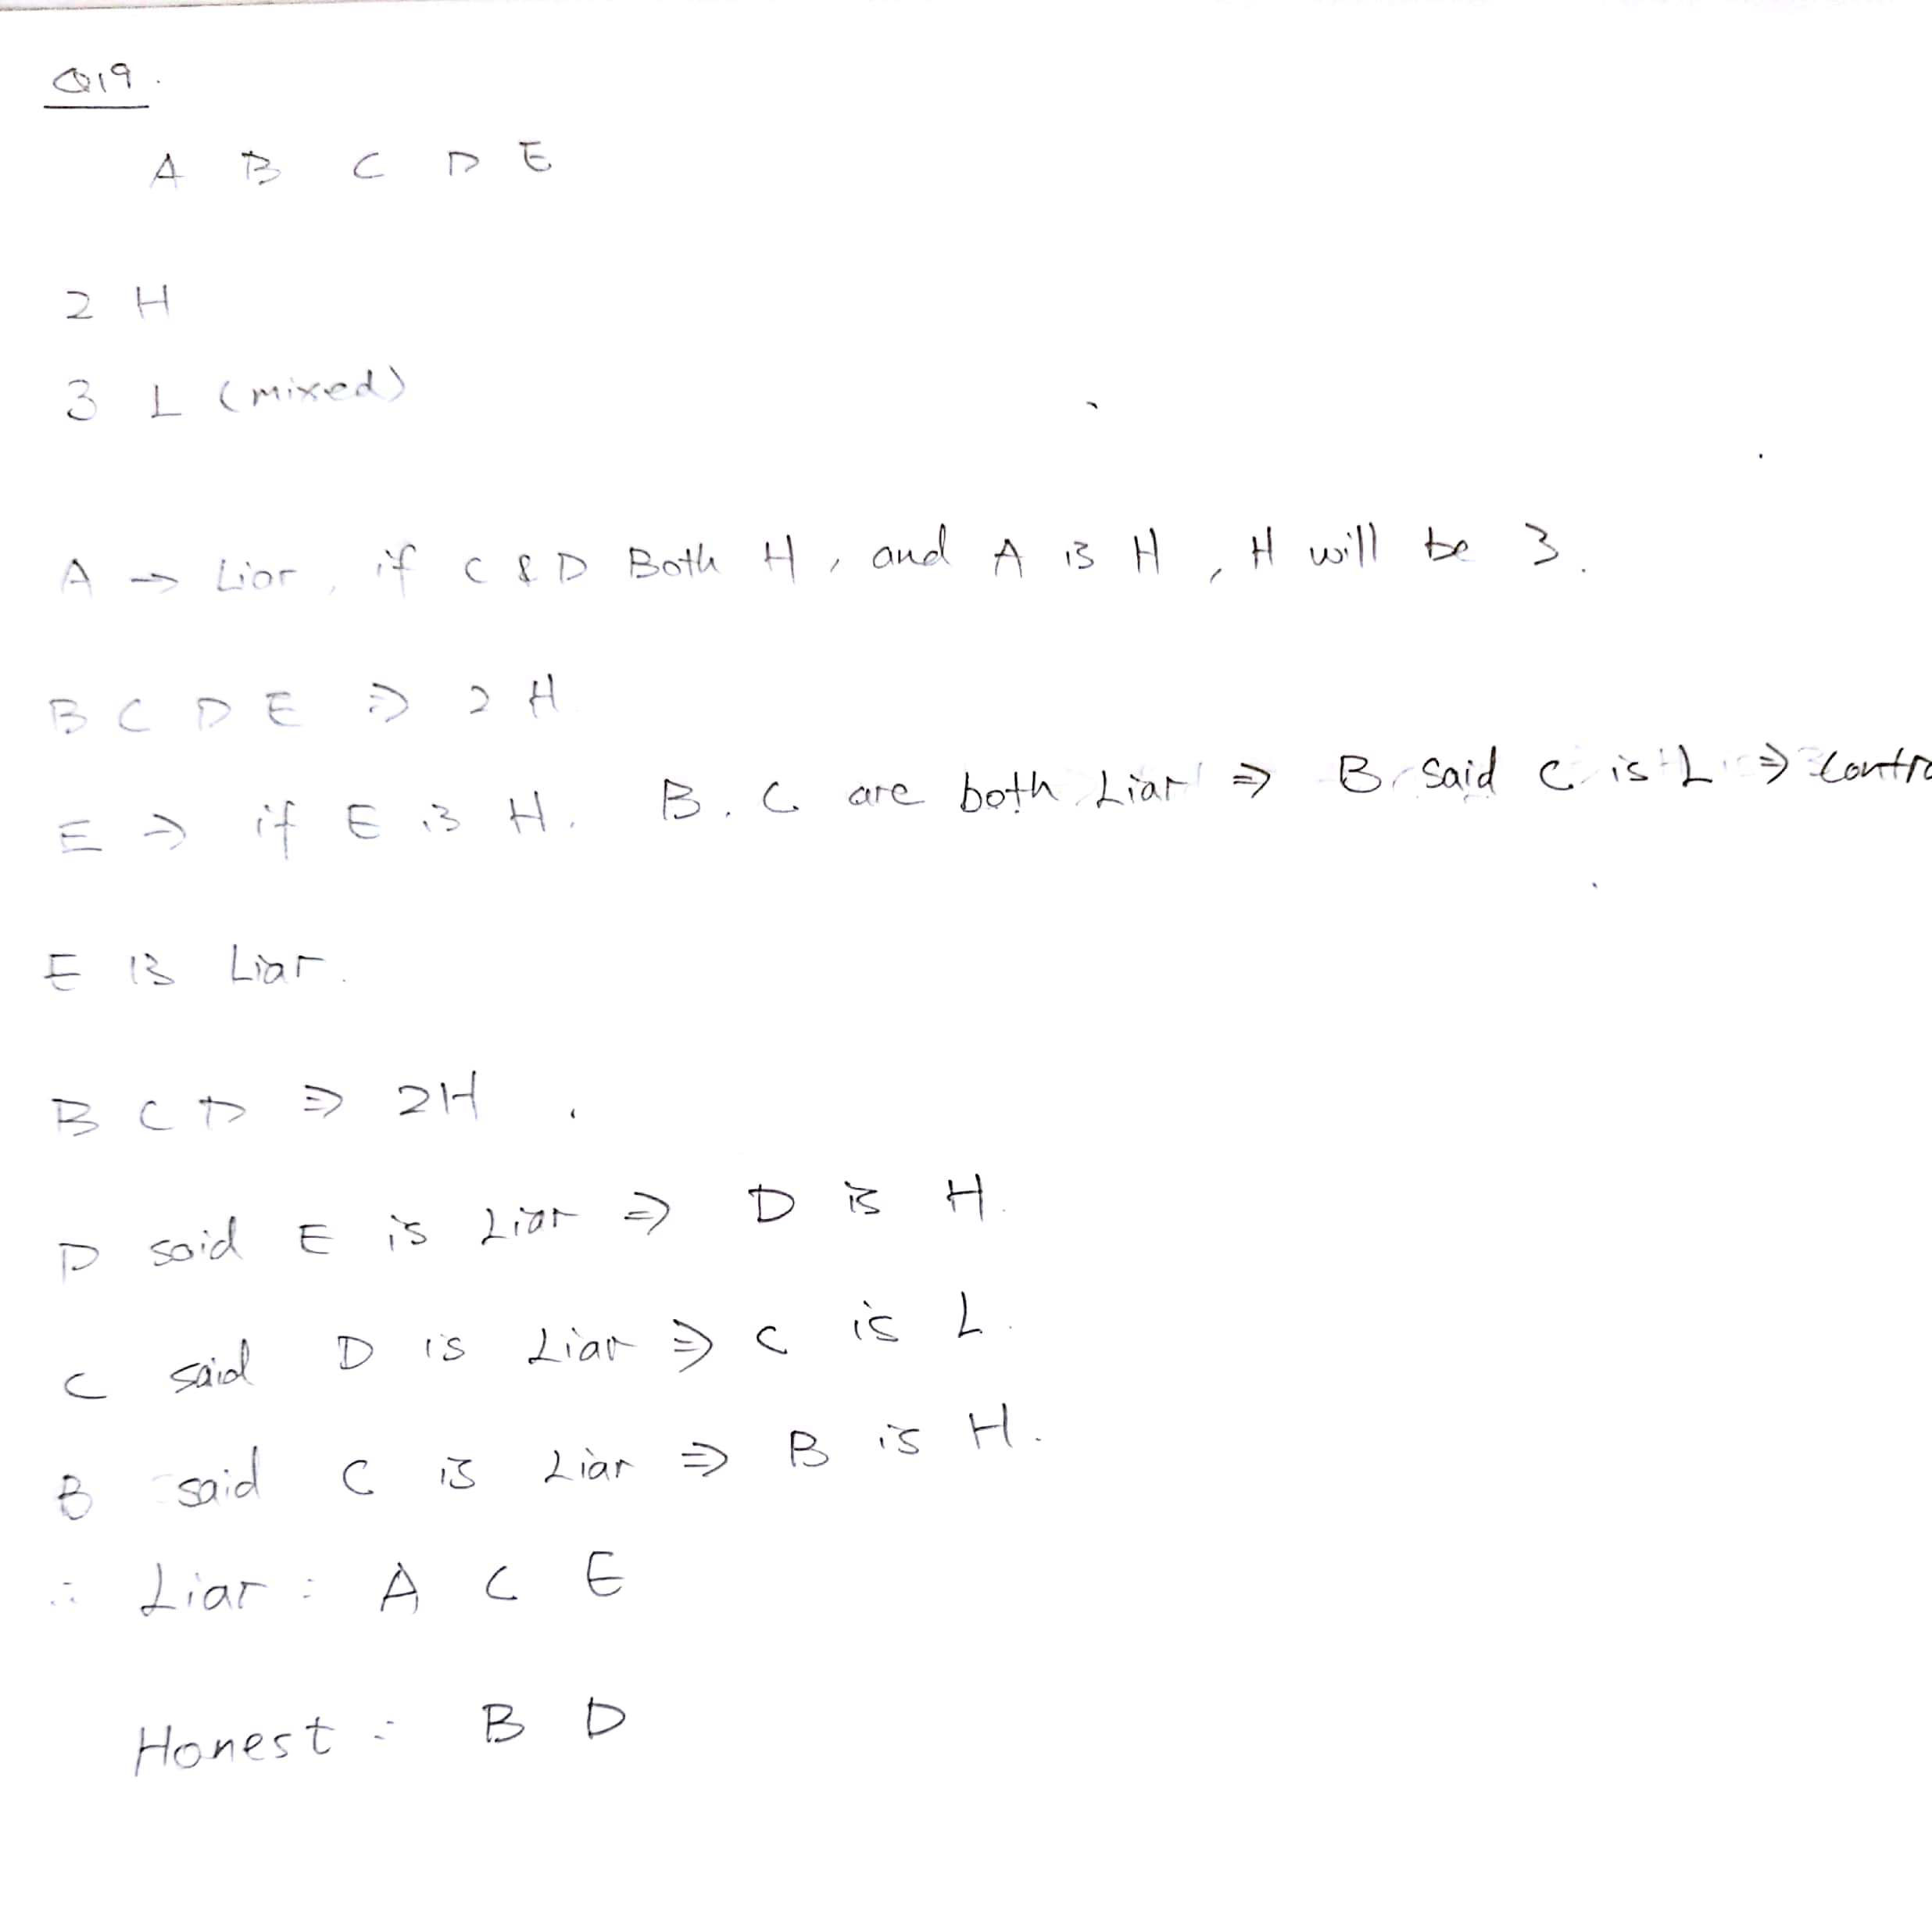 Q19.
A B C D E
2 H
3 L (mixed)
A → Liar, if C & D Both H, and A is H, H will be 3.
B C D E ⇒ 2 H
E ⇒ if E is H. B. C are both Liar ⇒ B said C is L ⇒ contra
E is Liar.
B C D ⇒ 2H.
D said E is Liar ⇒ D is H.
C said D is Liar ⇒ C is L.
B said C is Liar ⇒ B is H.
∴ Liar : A C E
Honest : B D